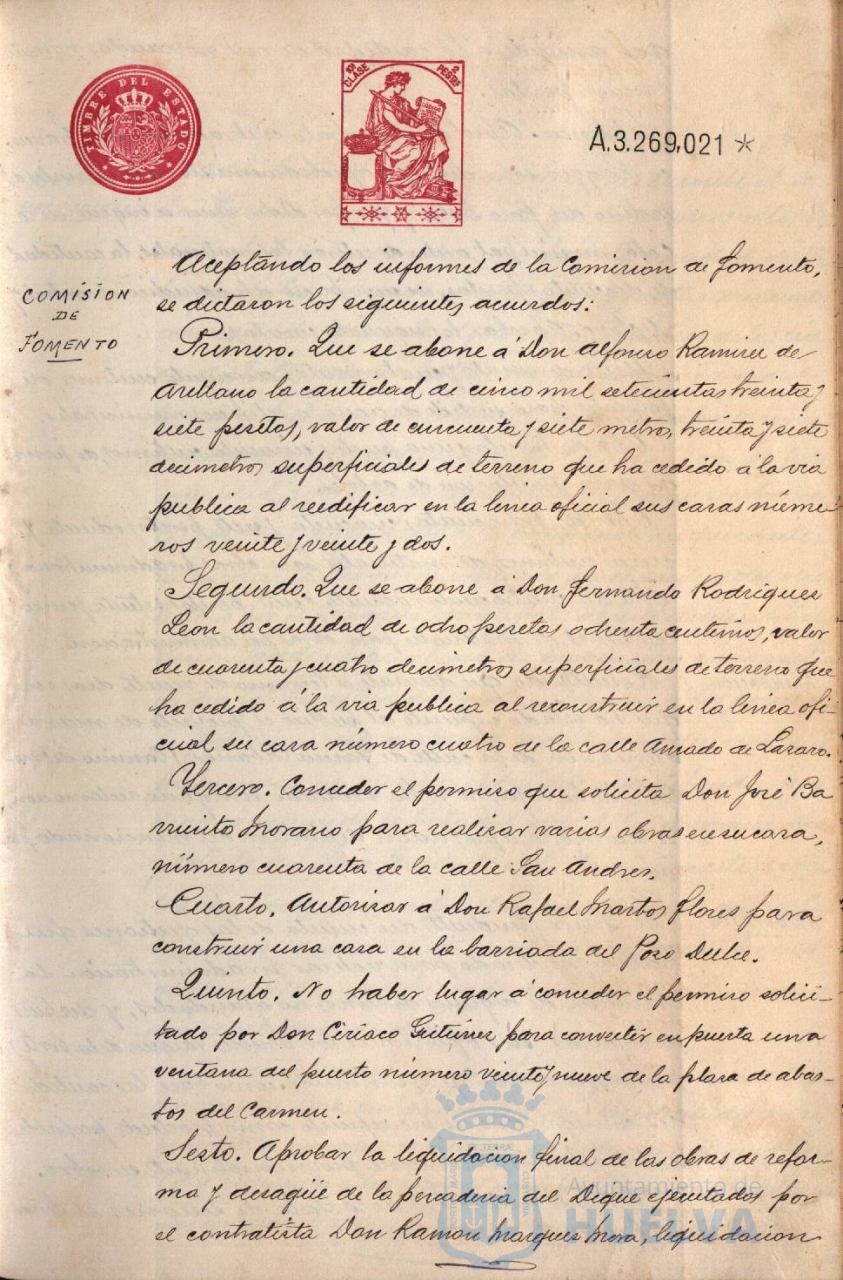 TIMBRE DEL ESTADO
10ª CLASE
2 PESETAS
A.3.269,021 *
COMISION
DE
FOMENTO
Aceptando los informes de la Comision de Fomento,
se dictaron los siguientes acuerdos:
Primero. Que se abone á Don Alfonso Ramirez de
Arellano la cantidad de cinco mil setecientas treinta y
siete pesetas, valor de cincuenta y siete metros, treinta y siete
decimetros superficiales de terreno que ha cedido á la via
publica al reedificar en la linea oficial sus casas núme-
ros veinte y veinte y dos.
Segundo. Que se abone á Don Fernando Rodriguez
Leon la cantidad de ocho pesetas ochenta centimos, valor
de cuarenta y cuatro decimetros superficiales de terreno que
ha cedido á la via publica al reconstruir en la linea ofi-
cial su casa número cuatro de la calle Amado de Lazaro.
Tercero. Conceder el permiso que solicita Don José Ba
rrunto Morano para realizar varias obras en su casa,
número cuarenta de la calle San Andres.
Cuarto. Autorizar á Don Rafael Martos Flores para
construir una casa en la barriada del Pozo Dulce.
Quinto. No haber lugar á conceder el permiso solici-
tado por Don Ciriaco Gutierrez para convertir en puerta una
ventana del puesto número veinte y nueve de la plaza de abas-
tos del Carmen.
Sexto. Aprobar la liquidacion final de las obras de refor-
ma y desagüe de la pescaderia del Dique ejecutados por
el contratista Don Ramon Marquez Mora, liquidacion
Ayuntamiento de
HUELVA